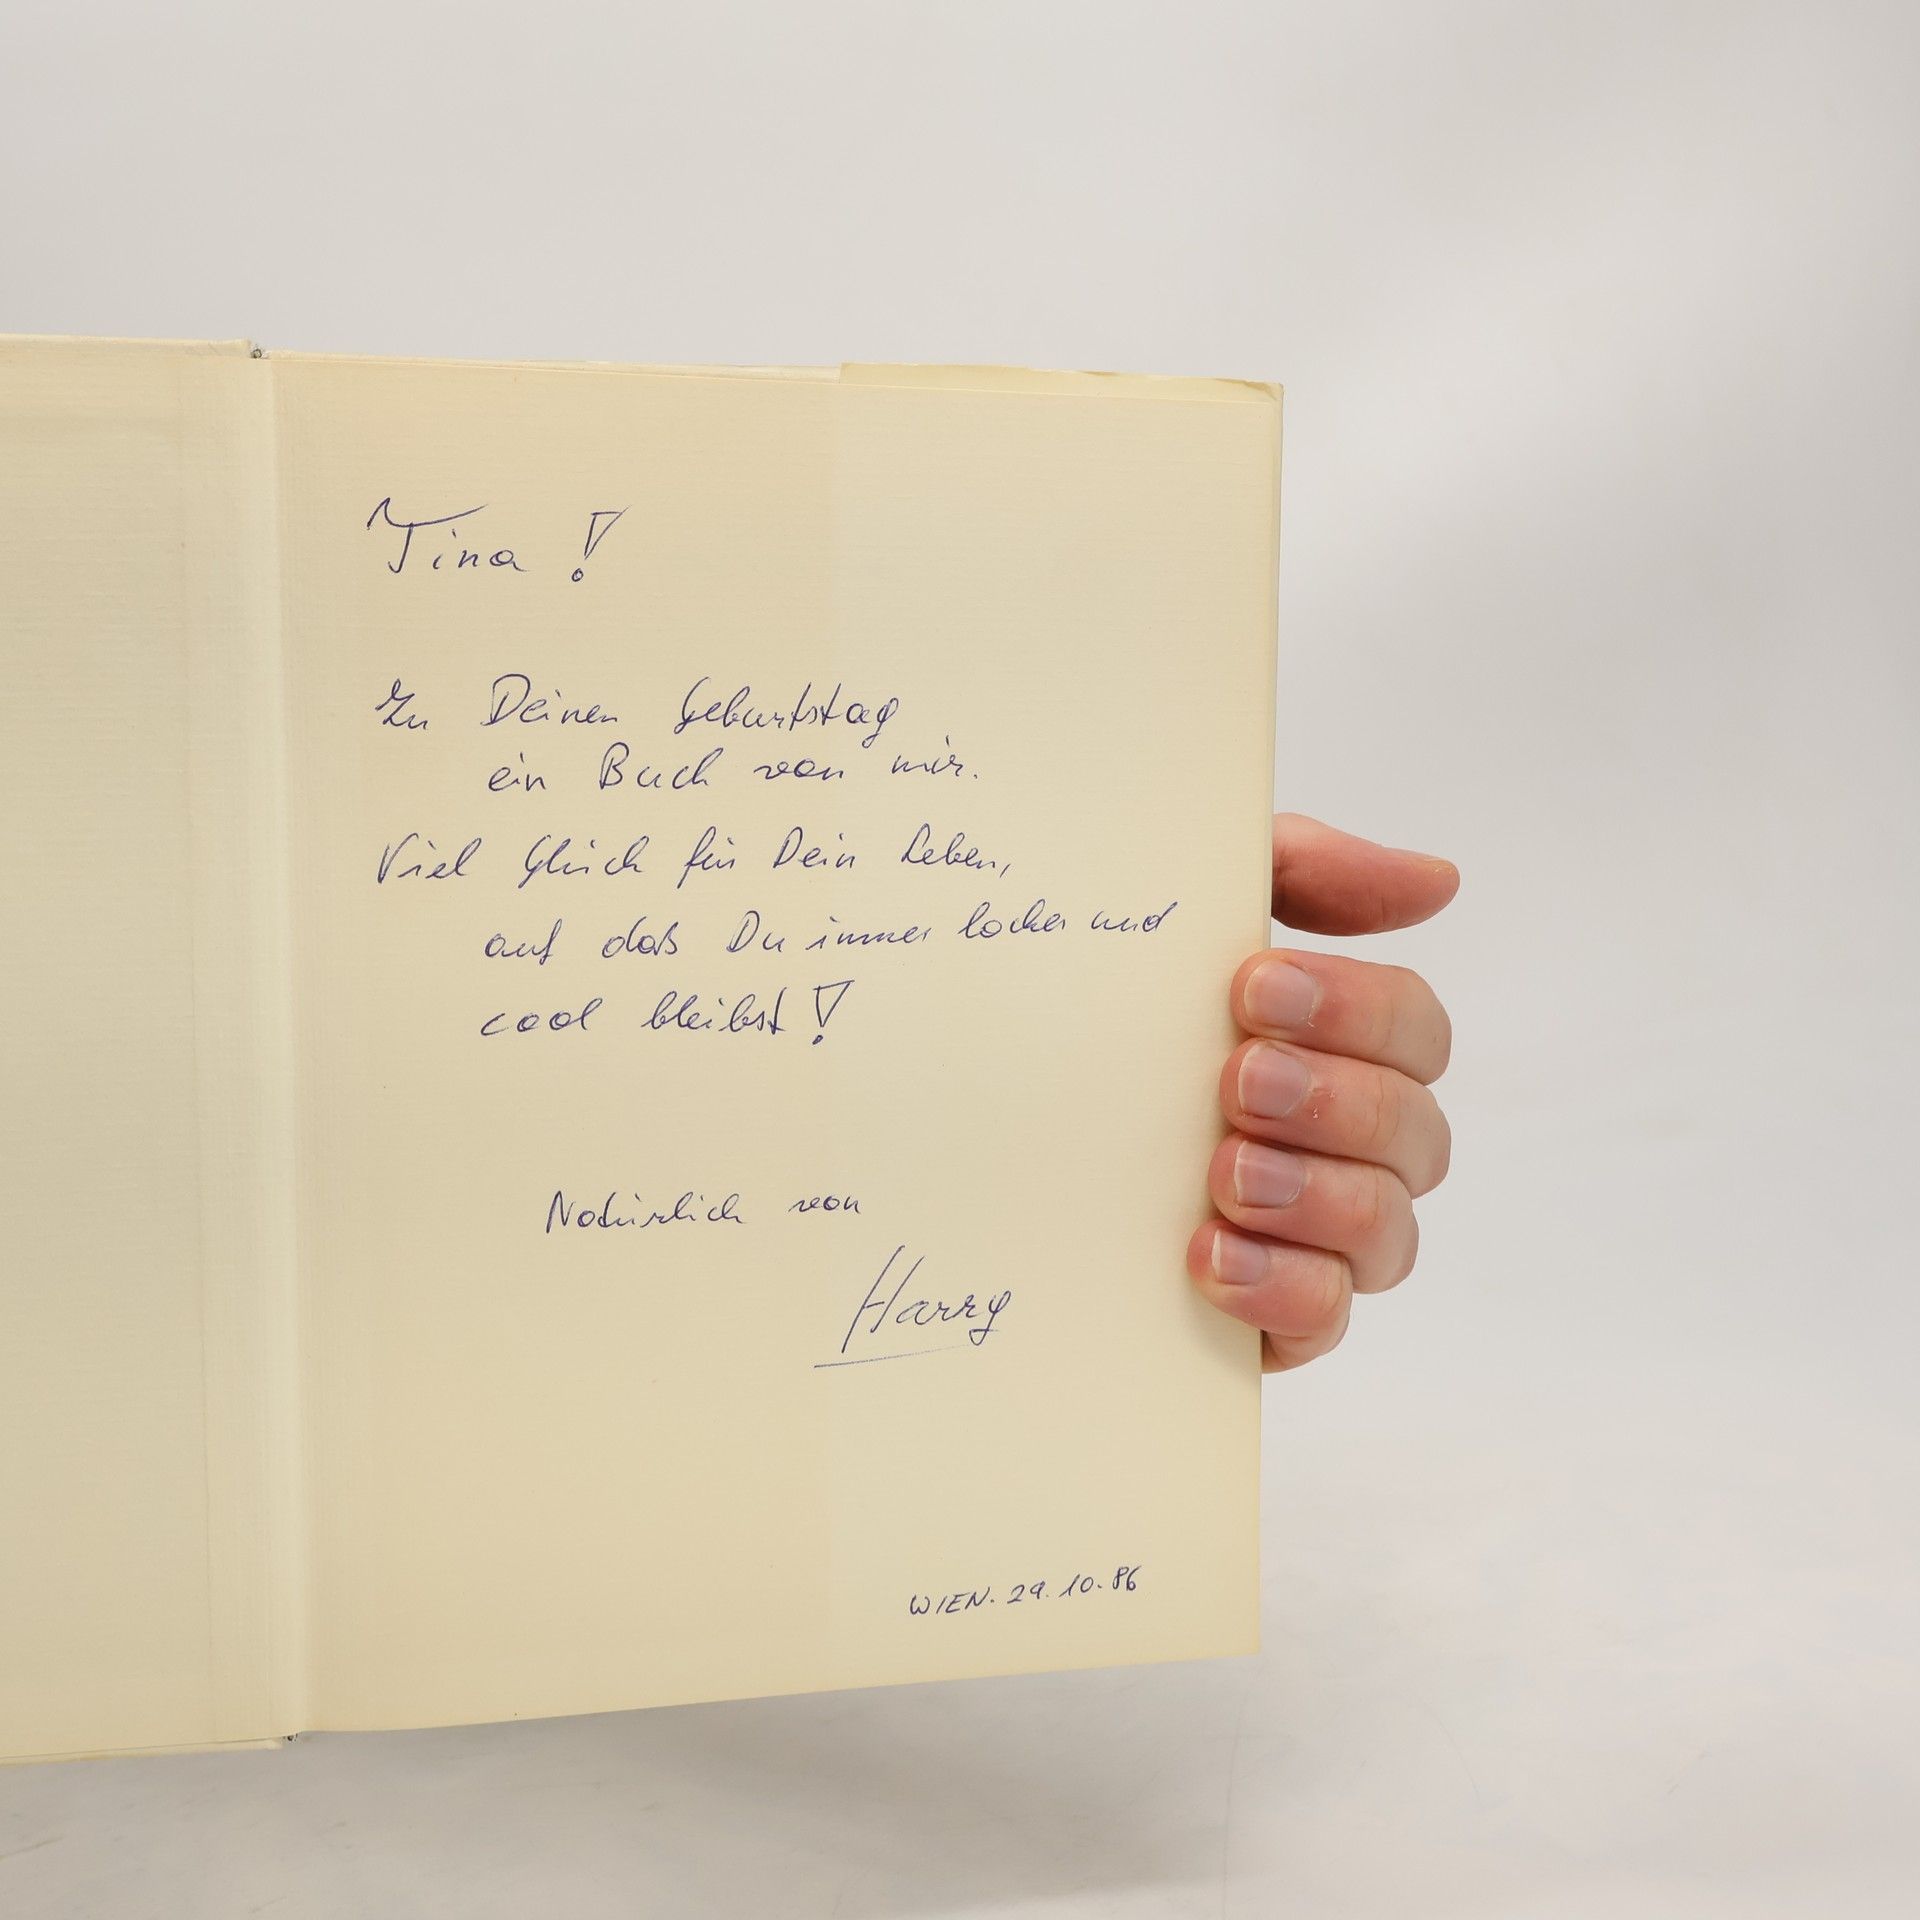 Tina !
Zu Deinen Geburtstag
ein Buch von mir.
Viel Glück für Dein Leben,
auf daß Du immer locker und
cool bleibst !
Natürlich von
Harry
WIEN. 29. 10. 86